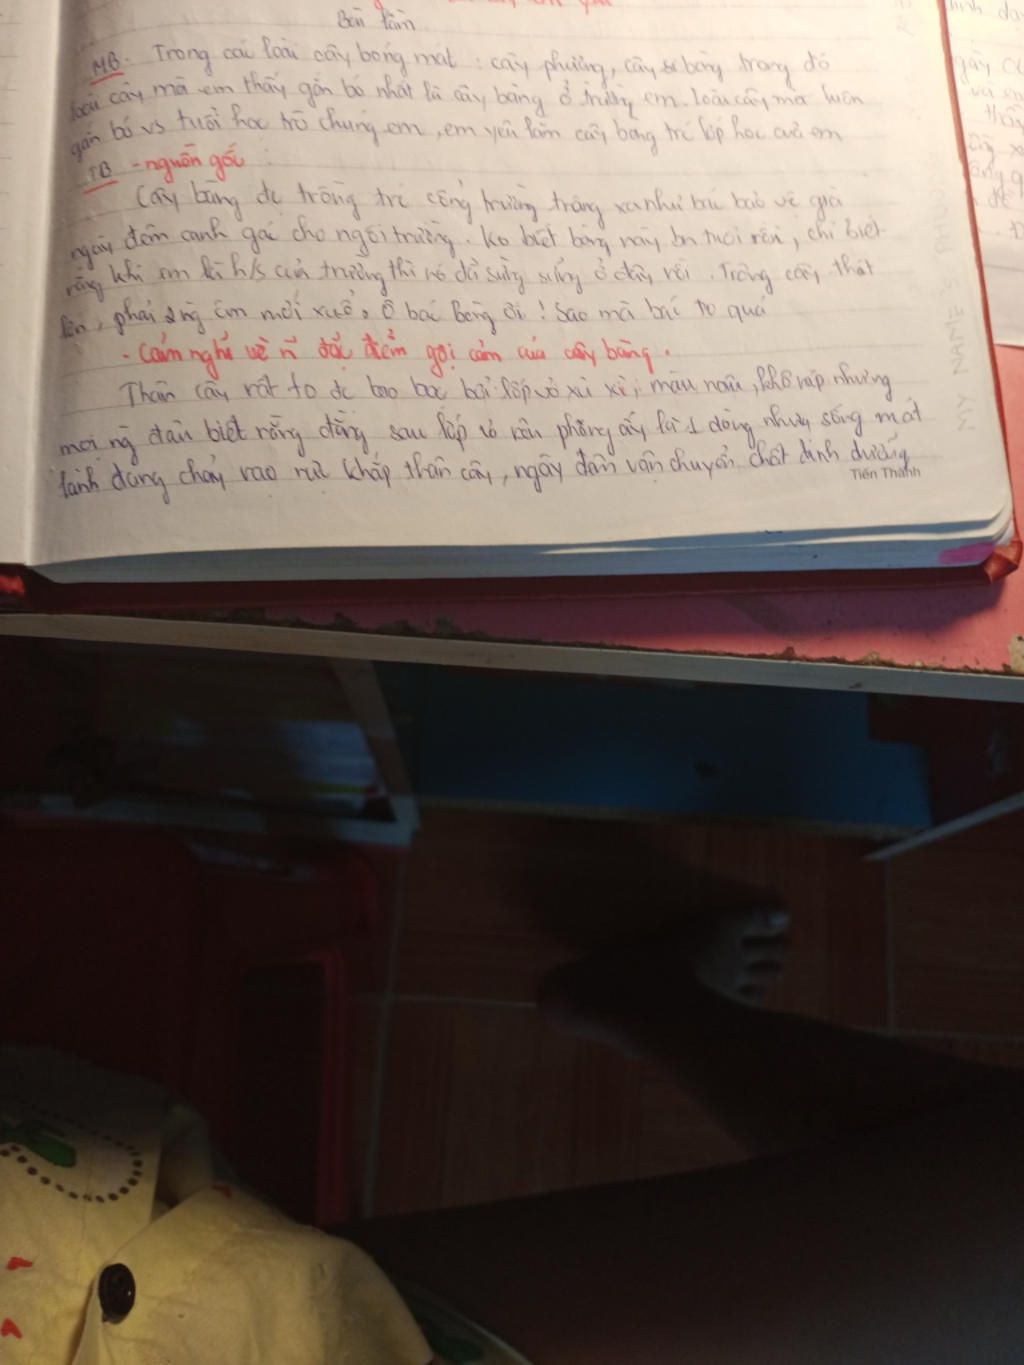 Bài làm
MB: Trong các loài cây bóng mát : cây phượng, cây bàng trong đó
loài cây mà em thấy gắn bó nhất là cây bàng ở trường em. Loài cây mà luôn
gắn bó vs tuổi học trò chúng em, em yêu lắm cây bàng trc lớp học của em
TB - nguồn gốc :
Cây bàng đc trồng trc cổng trường trông xa như bác bảo vệ già
ngày đêm canh gác cho ngôi trường. Ko biết bàng này bn tuổi rồi, chỉ biết
rằng khi em là h/s của trường thì nó đã sừng sững ở đây rồi. Trông cây thật
lớn, phải 2 ng ôm mới xuể. Ô bác Bàng ơi ! Sao mà bác to quá
- Cảm nghĩ về n~ đặc điểm gợi cảm của cây bàng.
Thân cây rất to đc bao bọc bởi lớp vỏ xù xì, màu nâu, khô ráp nhưng
mọi ng đâu biết rằng đằng sau lớp vỏ ấy là 1 dòng nhựa sống mát
lành đang chảy vào rút khắp thân cây, ngày đêm vận chuyển chất dinh dưỡng
Tiến Thành
MY NAME'S